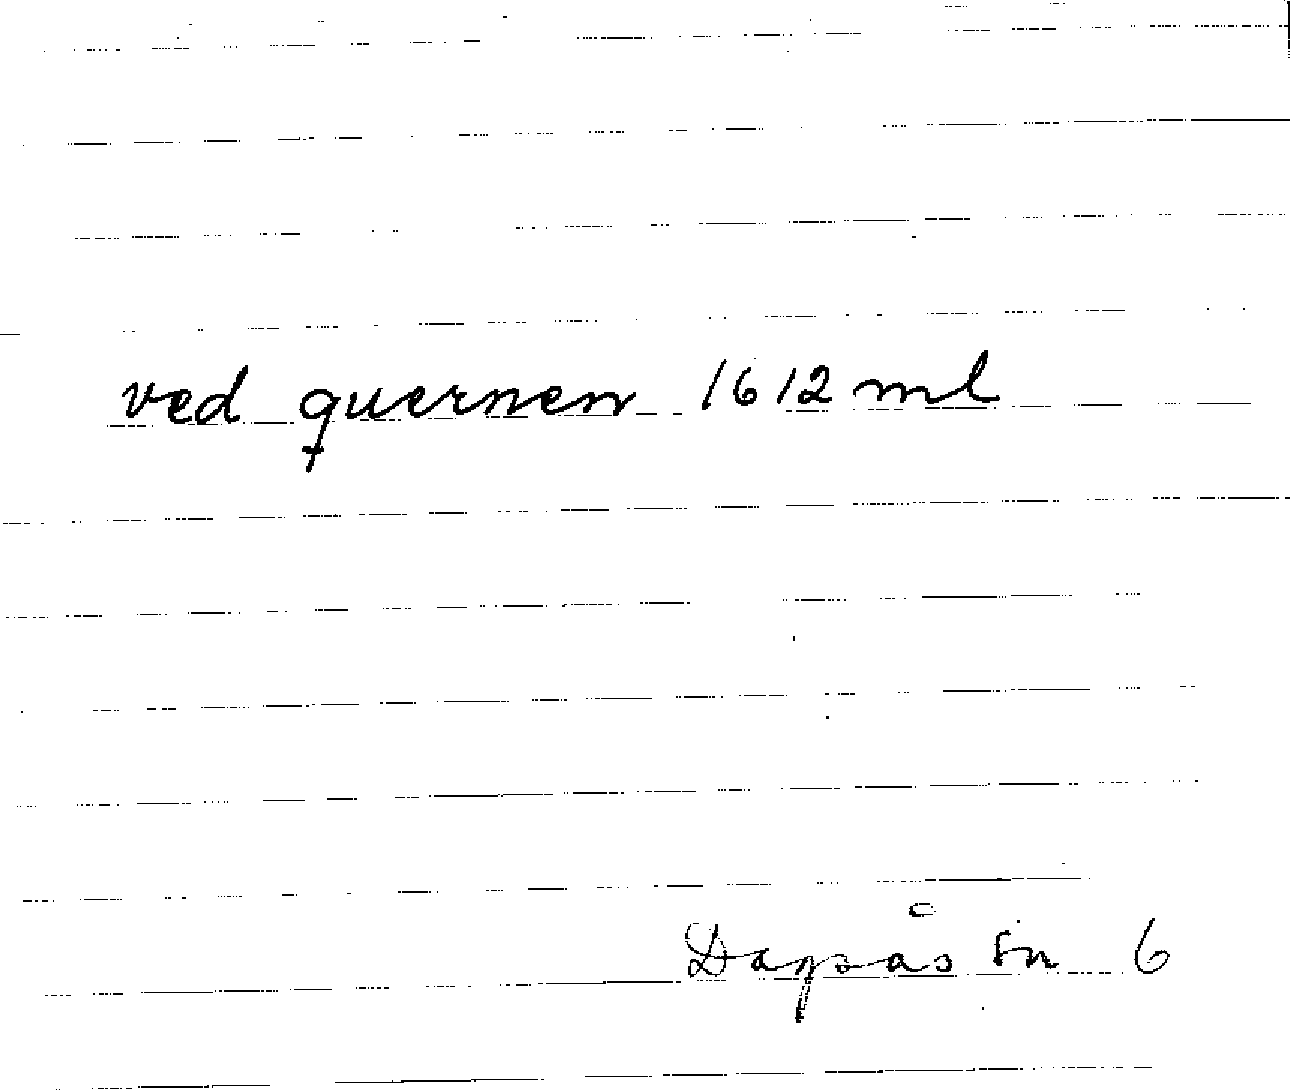 ved quernen 1612 ml
Dagsås sn 6